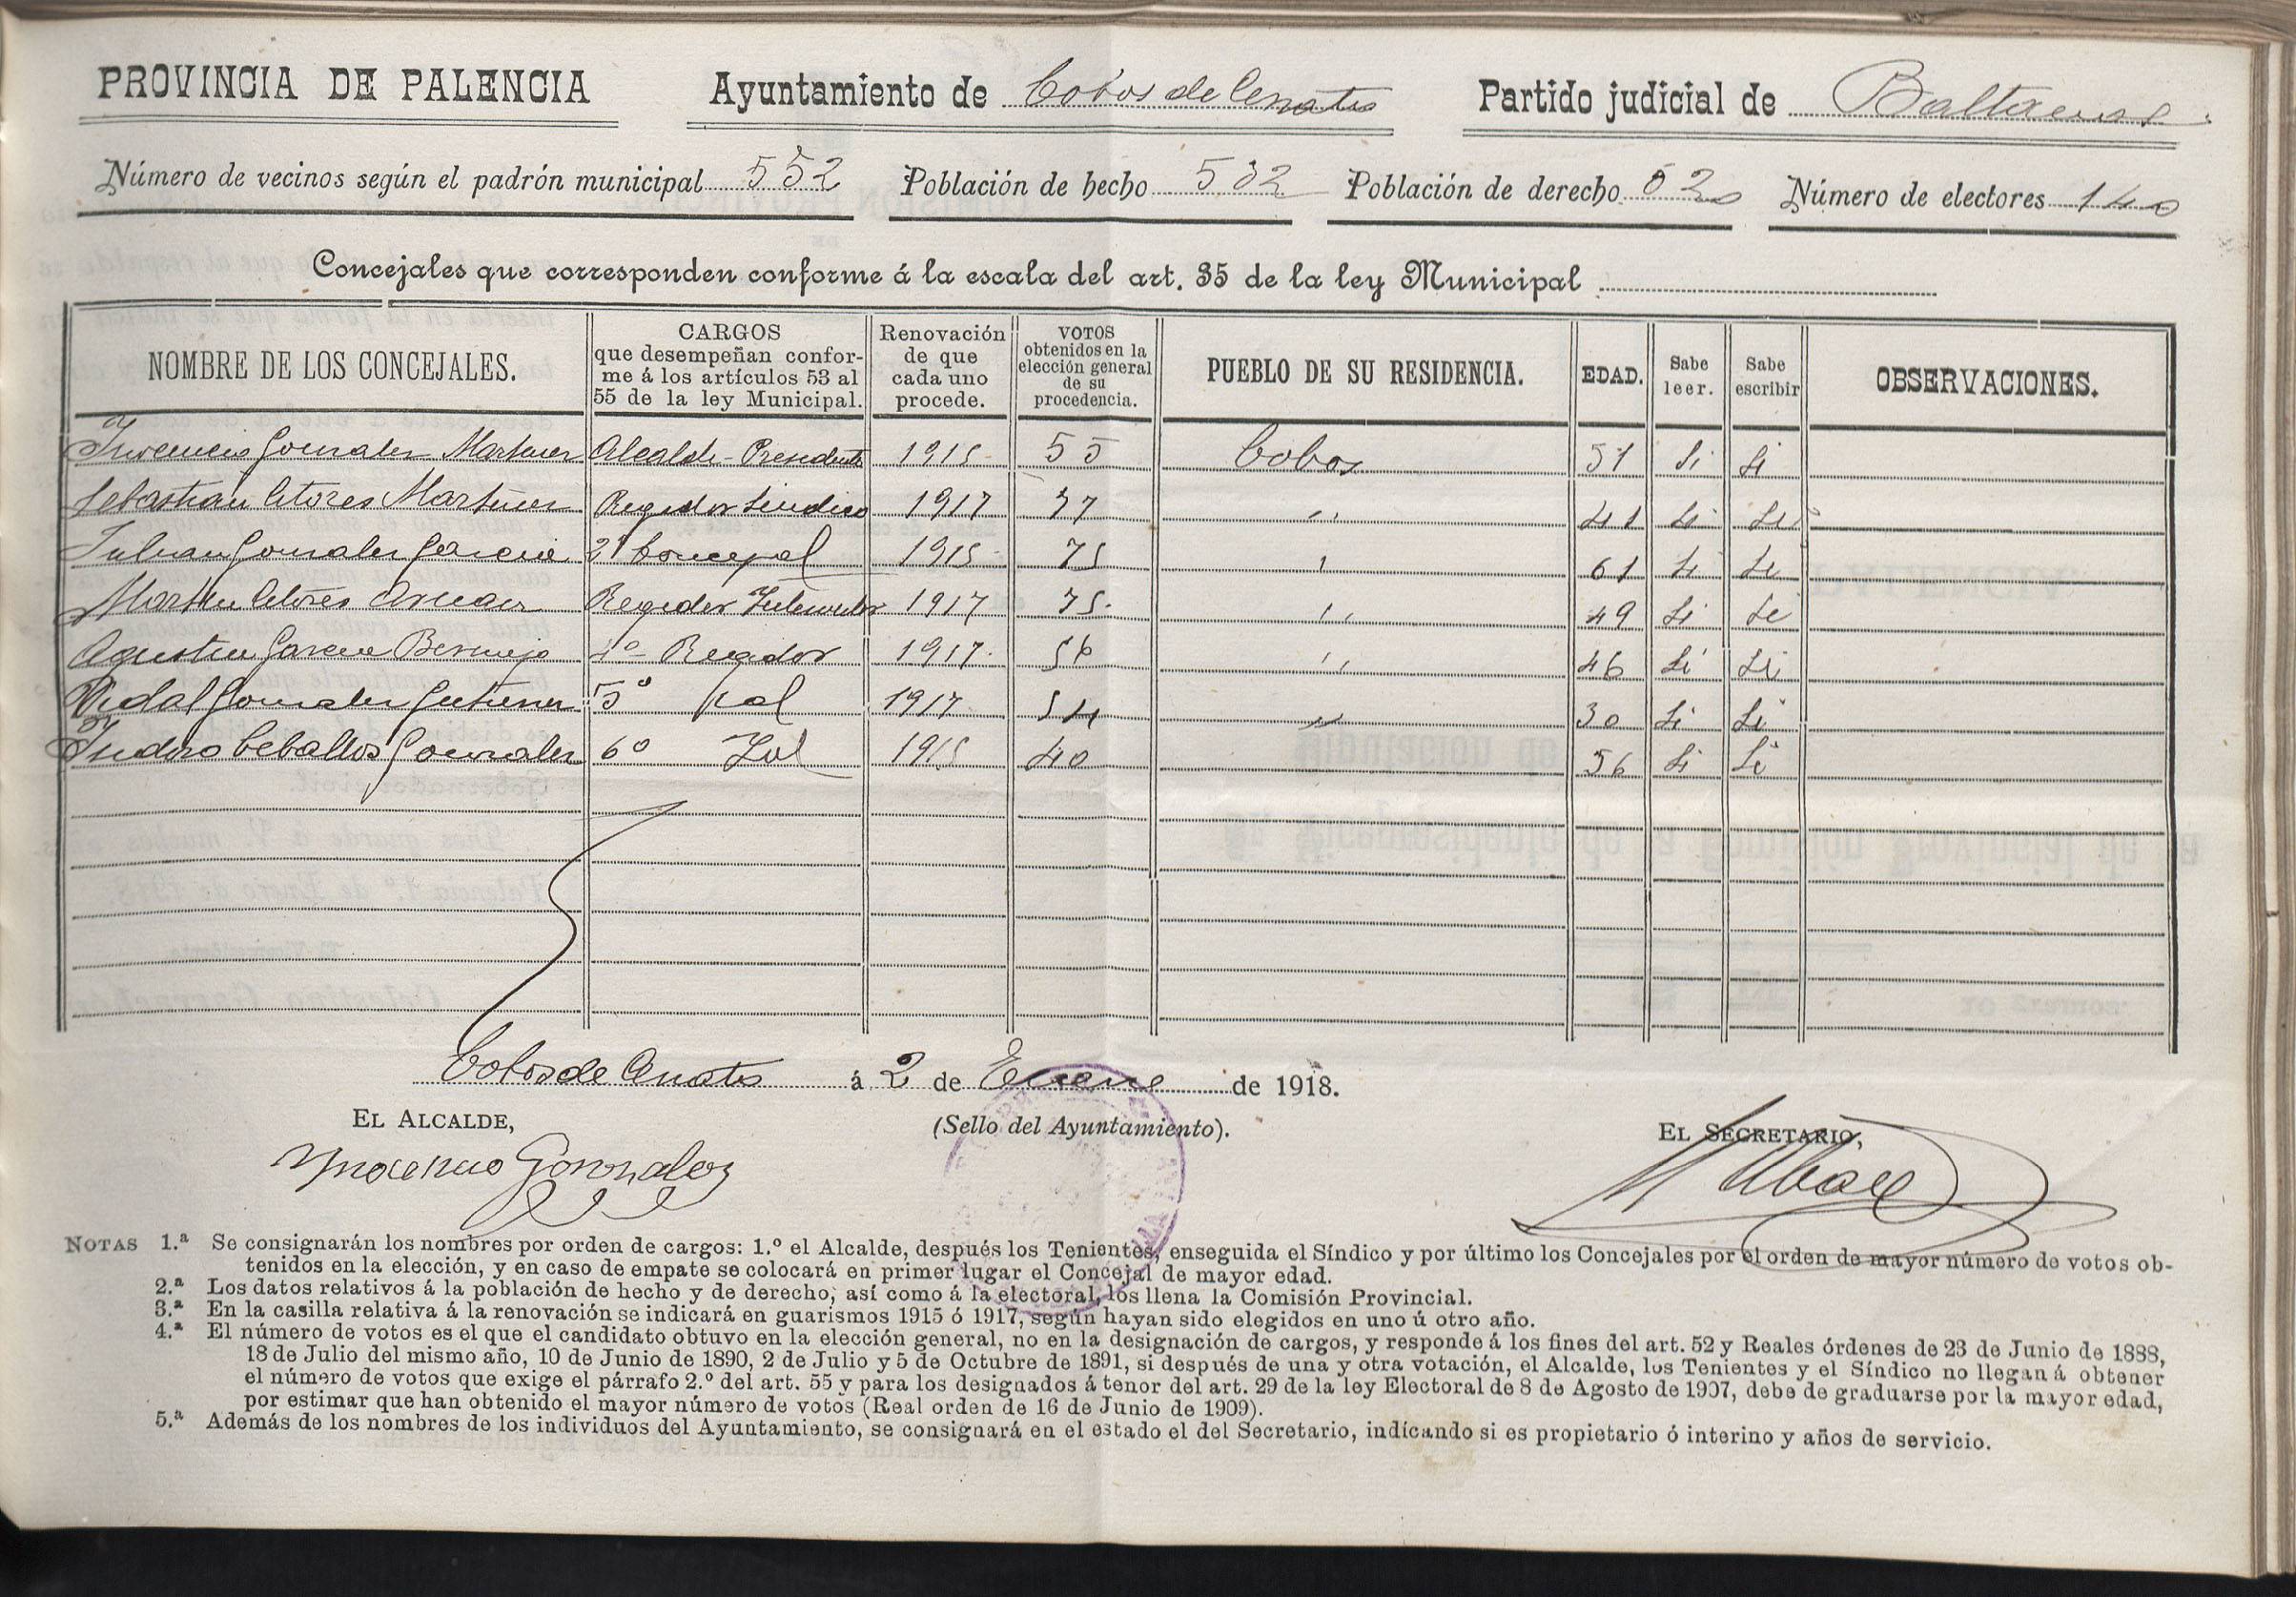 PROVINCIA DE PALENCIA Ayuntamiento de Cobos de Cerrato Partido judicial de Baltanás
Número de vecinos según el padrón municipal 552 Población de hecho 532 Población de derecho 520 Número de electores 140
Concejales que corresponden conforme á la escala del art. 35 de la ley Municipal
NOMBRE DE LOS CONCEJALES. CARGOS que desempeñan conforme á los artículos 53 al 55 de la ley Municipal. Renovación de que cada uno procede. VOTOS obtenidos en la elección general de su procedencia. PUEBLO DE SU RESIDENCIA. EDAD. Sabe leer. Sabe escribir OBSERVACIONES.
Inocencio Gonzalez Martinez Alcalde-Presidente 1915 55 Cobos 51 Si Si
Sebastian Citores Martinez Regidor Sindico 1917 77 " 41 Si Si
Julian Gonzalez Garcia 2º Concejal 1915 75 " 61 Si Si
Martin Citores Regidor 1917 75 " 49 Si Si
Agustin Garcia Bermejo 4º Regidor 1917 56 " 46 Si Si
Vidal Gonzalez Gutierrez 5º 1917 54 " 30 Si Si
Isidro Ceballos Gonzalez 6º 1915 40 56 Si Si
Cobos de Cerrato á 2 de Enero de 1918.
EL ALCALDE, (Sello del Ayuntamiento). EL SECRETARIO,
Ynocencio Gonzalez
NOTAS 1.ª Se consignarán los nombres por orden de cargos: 1.º el Alcalde, después los Tenientes, enseguida el Síndico y por último los Concejales por el orden de mayor número de votos ob-
tenidos en la elección, y en caso de empate se colocará en primer lugar el Concejal de mayor edad.
2.ª Los datos relativos á la población de hecho y de derecho, así como á la electoral, los llena la Comisión Provincial.
3.ª En la casilla relativa á la renovación se indicará en guarismos 1915 ó 1917, según hayan sido elegidos en uno ú otro año.
4.ª El número de votos es el que el candidato obtuvo en la elección general, no en la designación de cargos, y responde á los fines del art. 52 y Reales órdenes de 23 de Junio de 1888,
18 de Julio del mismo año, 10 de Junio de 1890, 2 de Julio y 5 de Octubre de 1891, si después de una y otra votación, el Alcalde, los Tenientes y el Síndico no llegan á obtener
el número de votos que exige el párrafo 2.º del art. 55 y para los designados á tenor del art. 29 de la ley Electoral de 8 de Agosto de 1907, debe de graduarse por la mayor edad,
por estimar que han obtenido el mayor número de votos (Real orden de 16 de Junio de 1909).
5.ª Además de los nombres de los individuos del Ayuntamiento, se consignará en el estado el del Secretario, indicando si es propietario ó interino y años de servicio.